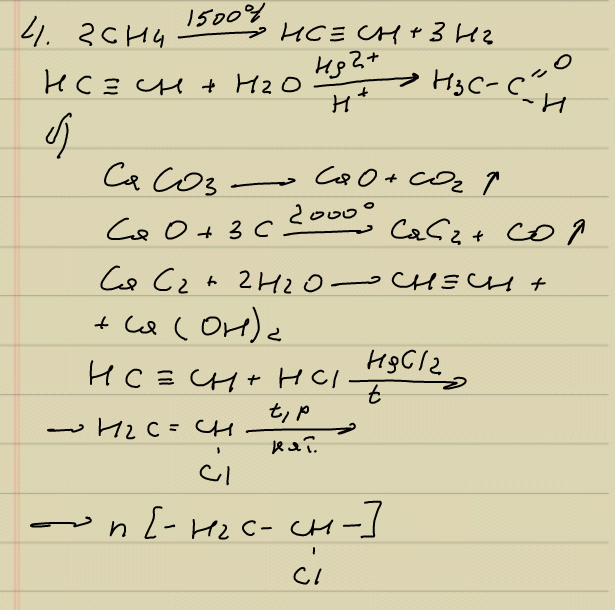 4). 2CH4 1500°C → HC≡CH + 3H2
HC≡CH + H2O Hg2+ H+ → H3C-C=O-H
б)
CaCO3 → CaO + CO2 ↑
CaO + 3C 2000° → CaC2 + CO ↑
CaC2 + 2H2O → CH≡CH +
+ Ca(OH)2
HC≡CH + HCl HgCl2 t →
→ H2C=CH t, p кат. →
Cl
→ n [-H2C-CH-]
Cl